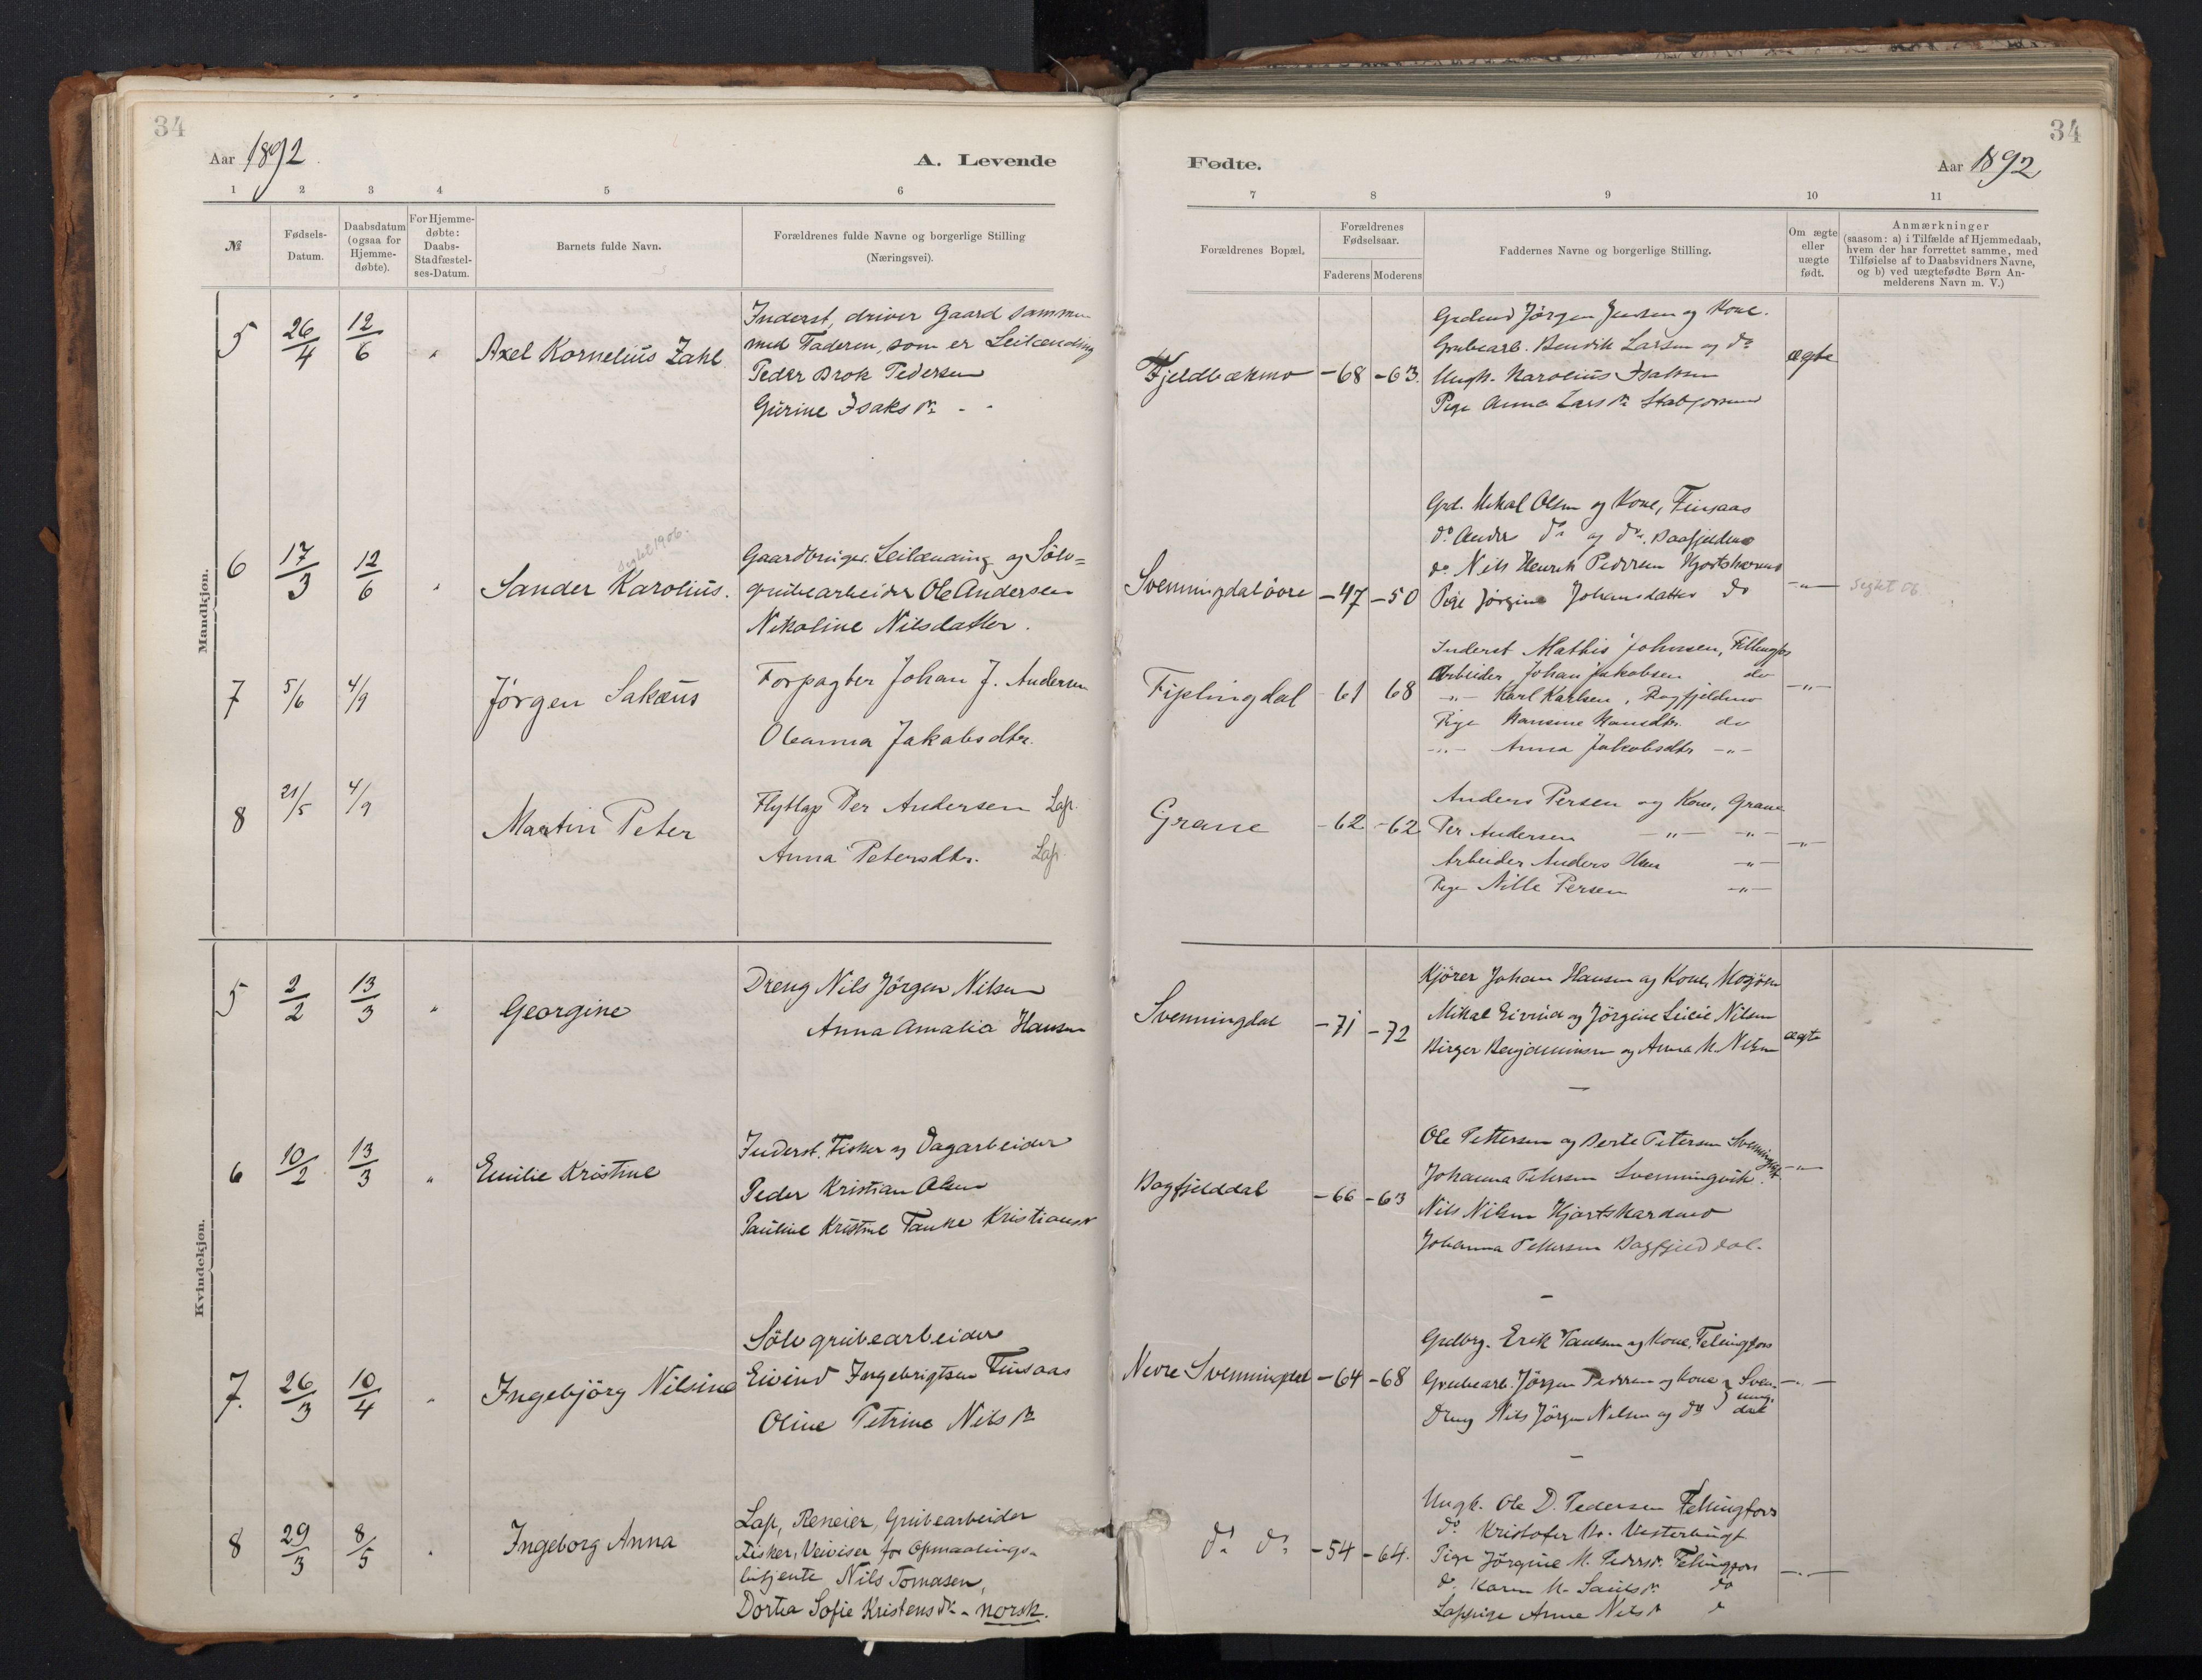 34
Aar 1892.
A. Levende
1 2 3 4 5 6
№
Fødsels-Datum.
Daabsdatum (ogsaa for Hjemme-døbte).
For Hjemme-døbte: Daabs-Stadfæstel-ses-Datum.
Barnets fulde Navn.
Forældrenes fulde Navne og borgerlige Stilling
(Næringsvei).
Mandkjøn.
5 26/4 12/6 " Axel Kornelius Zahl
Inderst, driver Gaard sammen
med Faderen, som er Leilænding
Peder Brok Pedersen
Gurine Isaksdr. - -
6 17/3 12/6 " Sander Karolius.
Seglet 1906.
Gaardbruger. Leilænding og Sölv=
grubearbeider Ole Andersen
Nikoline Nilsdatter.
7 5/6 4/9 Jörgen Sakæus
Forpagter Johan J. Andersen
Oleanna Jakobsdtr.
8 21/5 4/9 Martin Peter
Flytlap Per Andersen Lap.
Anna Petersdtr. Lap.
Kvindekjøn.
5 2/2 13/3 " Georgine
Dreng Nils Jörgen Nilsen
Anna Amalia Hansen
6 10/2 13/3 " Emilie Kristine
Inderst. Fisker og Dagarbeider
Peder Kristian Olsen
Pauline Kristine Tanke Kristiansdr
7. 26/3 10/4 " Ingebjörg Nilsine
Sölvgrubearbeider
Eivind Ingebrigtsen Finsaas
Oline Petrine Nilsdr.
8 29/3 8/5 " Ingeborg Anna
Lap, Reneier, Grubearbeider
Fisker, Veiviser for Opmaalings-
betjente Nils Tomasen,
Dortea Sofie Kristensdr. - norsk.
34
Fødte.
Aar 1892
7 8 9 10 11
Forældrenes Bopæl.
Forældrenes Fødselsaar.
Faderens Moderens
Faddernes Navne og borgerlige Stilling.
Om ægte eller uægte født.
Anmærkninger
(saasom: a) i Tilfælde af Hjemmedaab,
hvem der har forrettet samme, med
Tilføielse af to Daabsvidners Navne,
og b) ved uægtefødte Børn An-
melderens Navn m. V.)
Fjeldbækmo -68 -63. ægte
Jörgen Jensen og Kone.
Grubearb. Bendik Larsen og do
Ungk. Karolius Isaksen
Pige Anna Larsdr.
Svenningdalöore -47 -50 -"- Seglet 06.
Grd. Mikal Olsen og Kone, Finsaas
do Andr do og do.
do Nils Henrik Pedersen
Pige Jörgine Johansdatter do
Fiplingdal -61 68 -"-
Inderst Mathis Johnsen,
Arbeider Johan Jakobsen do
-"- Karl Karlsen,
Pige Hansine Hansdtr. do
-"- Anna Jakobsdtr -"-
Grane -62 -62 -"-
Anders Persen og Kone, Grane
Per Andersen -"- -"-
Arbeider Anders Olsen -"-
Pige Nille Persen -"-
Svenningdal -71 -72 ægte
Kjörer Johan Hansen og Kone, Mosjöen
Mikal Eivind og Jörgine Nilsen
Birger Benjaminsen og Anna M. Nilsen
Bagfjelddal -66 -63 -"-
Ole Pettersen og Berte Petersen
Johanna Petersen Svenningvik.
Nils Nilsen Hjortskardmo
Johanna Pettersen Bagfjelddal.
Nedre Svenningdal -64 -68 -"-
Grdbrg. Erik Paulsen og Kone,
Grubearb. Jörgen Pedersen og Kone } Sven-
ning-
Dreng Nils Jörgen Nilsen og do } dal
do do -54 -64. -"-
Ungk. Ole D. Pedersen
do Kristofer
Pige Jörgine M. Pedersdr.
do. Karen M. do
Lappige Anne Nilsdr